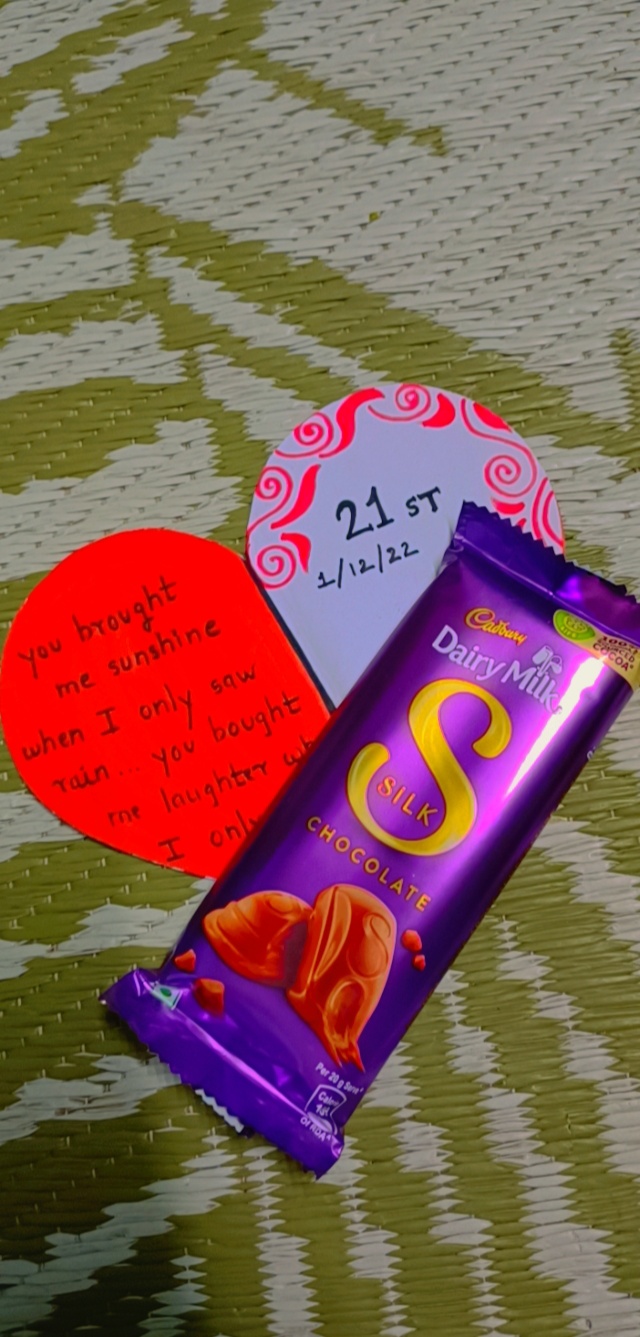 21 ST
1/12/22
you brought
me sunshine
when I only saw
rain... you bought
me laughter
I only
Cadbury
Dairy Milk
S
SILK
CHOCOLATE
100%
COCOA*
Per 20 g Serve*